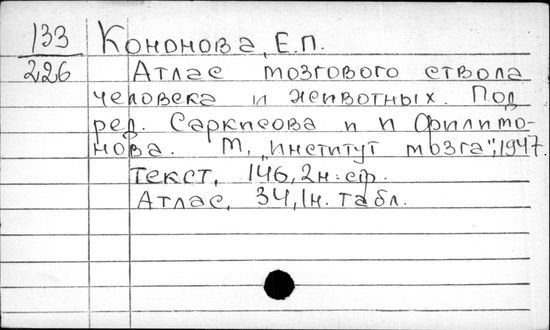 133
226
Кононова, Е.П.
Атлас мозгового ствола
человека и животных. Под
ред. Саркисова и И Филимо-
нова. М, "Институт мозга", 1947.
Текст, 146, 2н. ср.
Атлас, 34, 1н. табл.